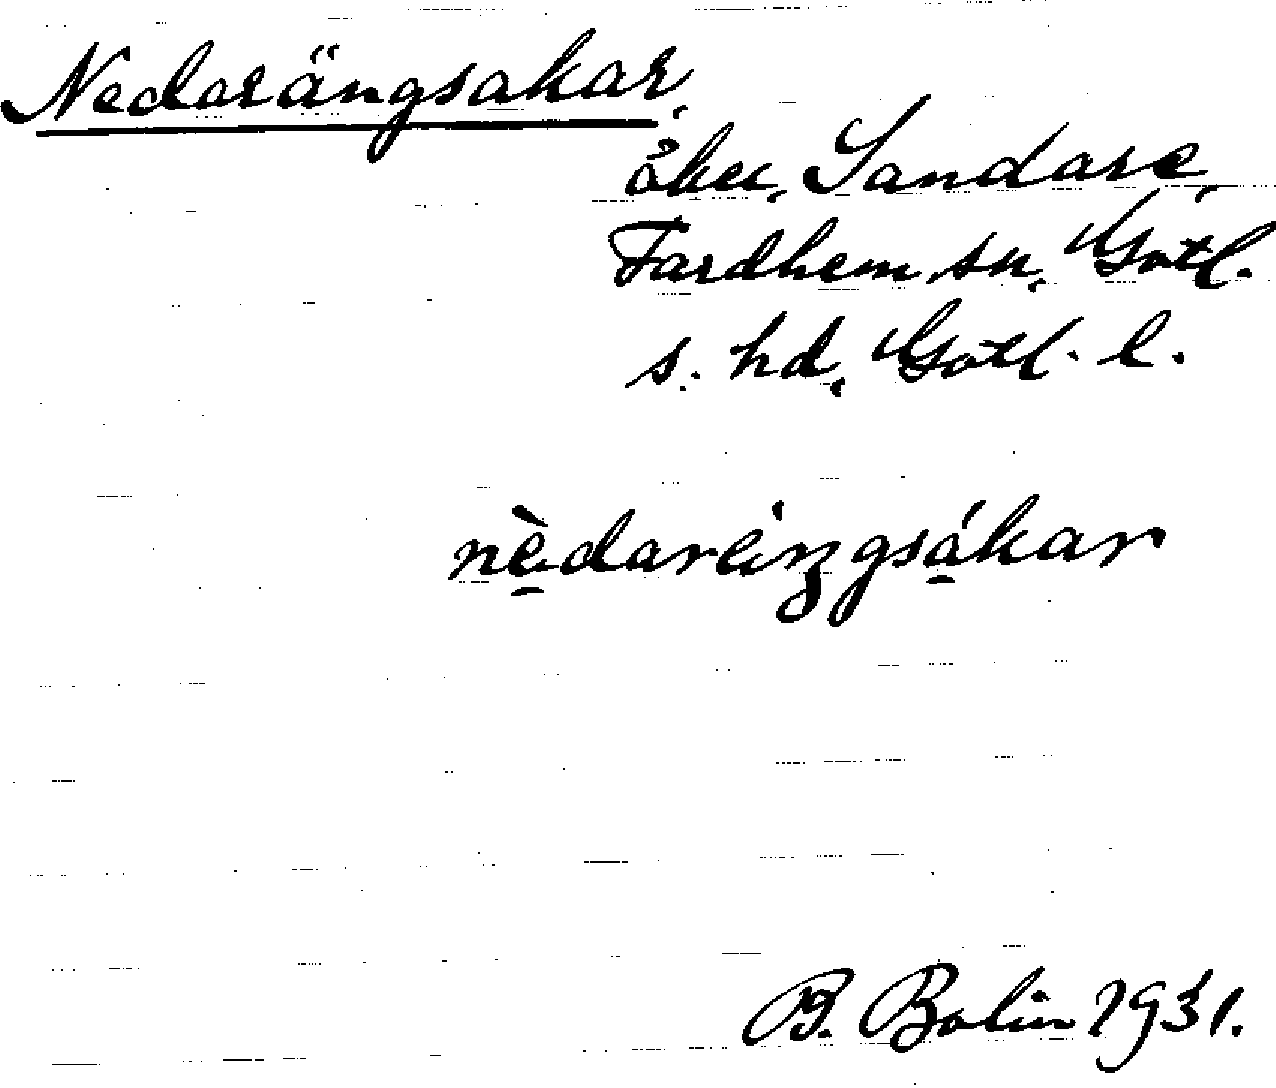 Nedarängsakar,
åker, Sandare,
Fardhem sn, Gotl.
s. hd, Gotl. l.
nèdareingsákar
B. Bolin 1931.